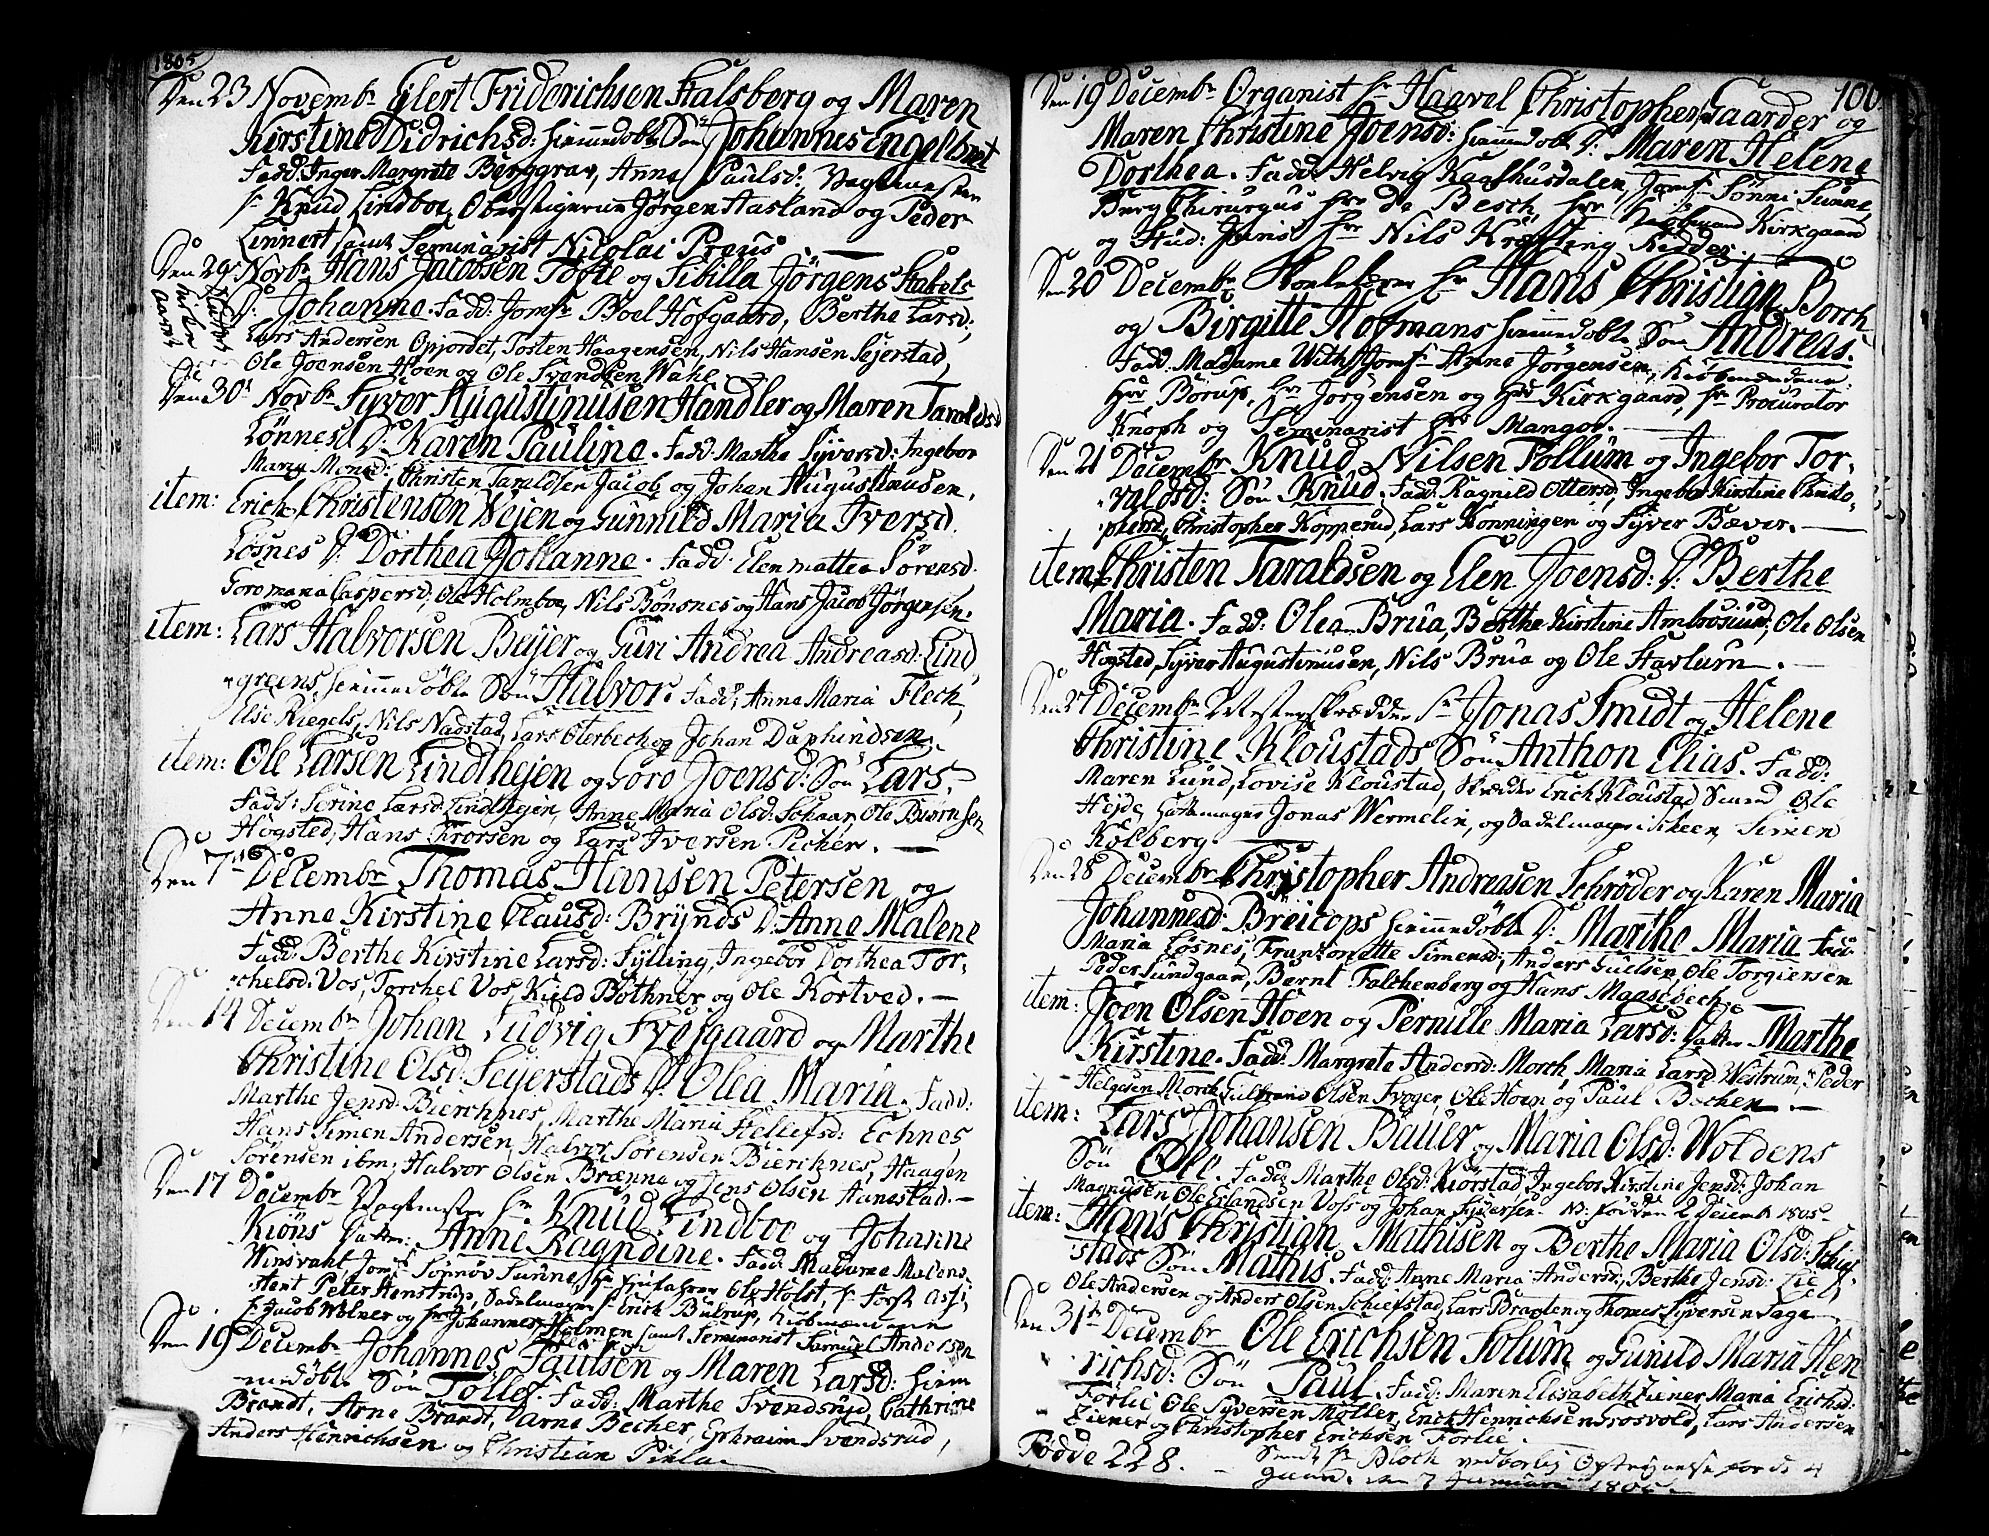 1805
Den 23 Novembr Eilert Friderichsen Halsberg og Maren
Kirstine Didrichsd: hiemmedøbte Søn Johannes Engelbret
Fadd: Inger Margrete Berggrav, Anne Paulsd: Vagtmester
Hr Knud Lindboe, Oberstigeren Jørgen Hasland og Peder
Linnert samt Seminarist Nicolai Preus.
Den 29 Novbr Hans Jacobsen Tofte og Sibilla Jörgens Habels
D: Johanne. Fadd: Jomfr Boel Hofgaard, Berthe Larsd:
Lars Andersen Opjordet, Tosten Haagensen, Nils Hansen Sejerstad,
Ole Joensen Hoen og Ole Svendsen Wahl.
Den 30 Novbr Syver Augustinusen Handler og Maren Taraldsd
Lönnes D: Karen Pauline. Fadd: Marthe Syversd: Ingebor
Maria Monsd: Christen Taraldsen Jacob og Johan Augustinusen.
item: Erich Christensen Wejen og Gunnild Maria Iversd.
Losnes D: Dorthea Johanne. Fadd: Elen Mattea Sörensd.
Goro Maria Caspersd: Ole Holmboe, Nils Bönsnes og Hans Jacob Jörgensen.
item: Lars Halvorsen Beijer og Guri Andrea Andreasd: Lind
greens, hiemmedöbte Søn Halvor. Fadd: Anne Maria Fleck,
Else Riegels, Nils Nadstad, Lars Oterbech og Johan Daphindsen.
item: Ole Larsen Lindhejen og Goro Joensd: Søn Lars.
Fadd: Serine Larsd: Lindhejen, Anne Maria Olsd: Schaar, Ole Biörnsen
Högsted, Hans Trorsen og Lars Iversen Picher.
Den 7de Decembr Thomas Hansen Petersen og
Anne Kirstine Clausd: Brynds D: Anne Malene
Fadd: Berthe Kirstine Larsd: Sylling, Ingebor Dorthea Tor-
chelsd: Vos, Torchel Vos, Kield Bothner og Ole Kortved.
Den 14 Decembr Johan Ludvig Hvefgaard og Marthe
Christine Olsd: Seijerstads D: Olea Maria. Fadd:
Marthe Jensd: Bierchnes, Marthe Maria Hellefsd: Echnes,
Hans Simen Andersen, Halvor Sörensen Bierchnes, Haagen
Sörensen ibm, Halvor Olsen Brænne og Jens Olsen Aanestad.
Den 17 Decembr Vagtmester Hr Knud Lindboe og Johanne
Kiöns Datter: Anne Ragndine. Fadd: Madame Malene
Winsvant, Jomfr Sönnöv Sunne, Hr Ole Holst, Hr Forst
Peter Henstrup, Sadelmager Hr Erich Bulrup, Kiöbmændene
Hr Jacob Wölner og Hr Johannes Holmen samt Seminarist Samuel Andersen
Den 19 Decembr Johannes Paulsen og Maren Larsd: hiem
medöbte Søn Tollef. Fadd: Marthe Svendsrud, Cathrine
Brandt, Arne Brandt, Arne Becher, Ephraim Svendsrud,
Anders Henrichsen og Christian Pihl
100
Den 19 Decembr Organist Hr Haavel Christopher Gaarder og
Maren Christine Joensd: hiemmedøbte D: Maren Helene
Dorthea. Fadd: Helvig Kaalhusdalen, Jomfr Sönni Sunne,
Berg Chirurgus Hr de Besch, Hr Kirkgaard
og Stud: Juris Hr Nils Kröfting Kedder.
Den 20 Decembr Skolelærer Hr Hans Christian Borch
og Birgitte Hofmans hiemmedöbte Søn Andreas.
Fadd: Madame With, Jomfr Anne Jörgensen, Kiöbmændene:
Hr Borup, Hr Jörgensen og Hr Kirkgaard, Hr Procurator
Knoph og Seminarist Hr Mangor.
Den 21 Decembr Knud Nilsen Tollum og Ingebor Tor-
valdsd: Søn Knud. Fadd: Ragnild Ottersd, Ingebor Kirstine Christo-
phersd, Christopher Kopperud, Lars Konningen og Syver Bæver.
item: Christen Taraldsen og Elen Joensd: D: Berthe
Maria. Fadd: Olea Brua, Berthe Kirstine Ambrosiusd, Ole Olsen
Hogsted, Syver Augustinusen, Nils Brua og Ole Havlum.
Den 27 Decembr Mesterskrædder Hr Jonas Smidt og Helene
Christine Kloustads Søn Anthon Elias. Fadd:
Maren Lund, Lovise Kloustad, Skrædder Erich Kloustad Svend Ole
Hejde, Hattemager Jonas Wermelin, og Sadelmager i Skeen Simen
Kolberg.
Den 28 Decembr Christopher Andreasen Schrøder og Karen Maria
Johannesd: Breicops hiemmedöbte D: Marthe Maria Fadd:
Maria Losnes, Frantsmette Simensd, Anders Guelsen, Ole Torgiersen
Peder Lundgaard, Bernt Falchenberg og Hans Maasebech.
item: Joen Olsen Hoen og Pernille Maria Larsd: Datter Marthe
Kirstine. Fadd: Margrete Andersd: Morch, Maria Larsd Westrum, Peder
Helgesen Morch, Gulbrand Olsen Fröger, Ole Hoen og Paul Bechen.
item: Lars Johansen Bauer og Maria Olsd: Woldens
Søn Ole Fadd: Marthe Olsd: Kiörstad, Ingebor Kirstine Jensd: Johan
Magnusen, Ole Erlandsen Voss og Johan Syversen. NB: födden 2 Decemb 1805
item: Hans Christian Mathisen og Berthe Maria Olsd: Schief
stads Søn Mathis. Fadd: Anne Maria Andersd, Berthe Jensd: Lie,
Ole Andersen og Anders Olsen Schiefstad, Lars Bragten og Thomes Syversen Saga
Den 31te Decembr Ole Erichsen Tolum og Gunild Maria Hen
richsd: Søn Paul. Fadd: Maren Elisabeth Ziener, Maria Erichsd:
Forlie, Ole Syversen Möller, Erich Henrichsen Grosvold, Lars Andersen
Ziener og Christopher Erichsen Forlie.
Födde 228. Sendt Hr Bloch vedbørlig Optegnelse for de 4
7 Januarii 1806